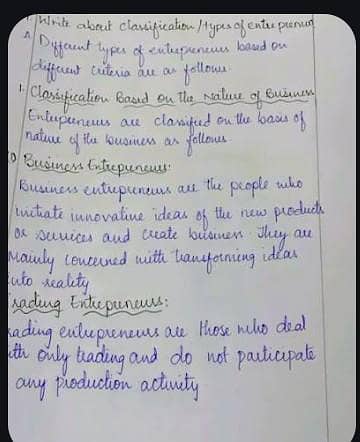 1. Write about classification/types of entrepreneur
A. Different types of entrepreneurs based on
different criteria are as follows.
1. Classification Based on the Nature of Business
Entrepreneurs are classified on the basis of
nature of the business as follows.
Business Entrepreneurs:
Business entrepreneurs are the people who
initiate innovative ideas of the new products
or services and create business. They are
mainly concerned with transforming ideas
into reality
Trading Entrepreneurs:
trading entrepreneurs are those who deal
with only trading and do not participate
any production activity